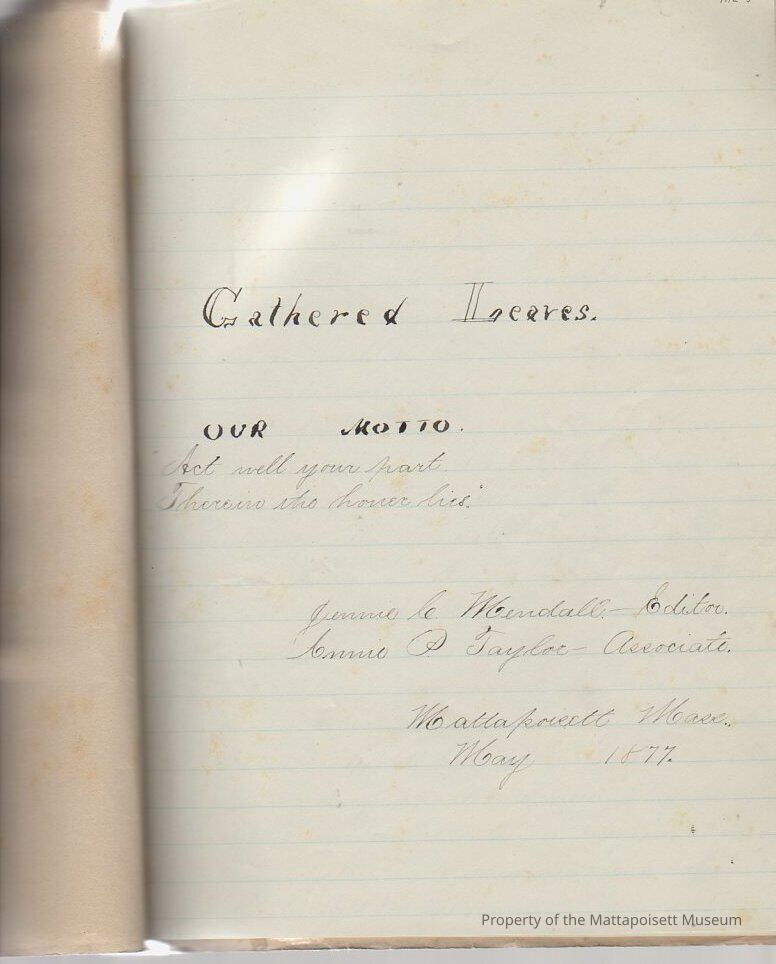 Gathered Leaves.
OUR MOTTO.
Act well your part
Therein the honor lies."
Jennie C. Mendall.— Editor.
Annie P Taylor— Associate.
Mattapoisett Mass.
May 1877.
Property of the Mattapoisett Museum